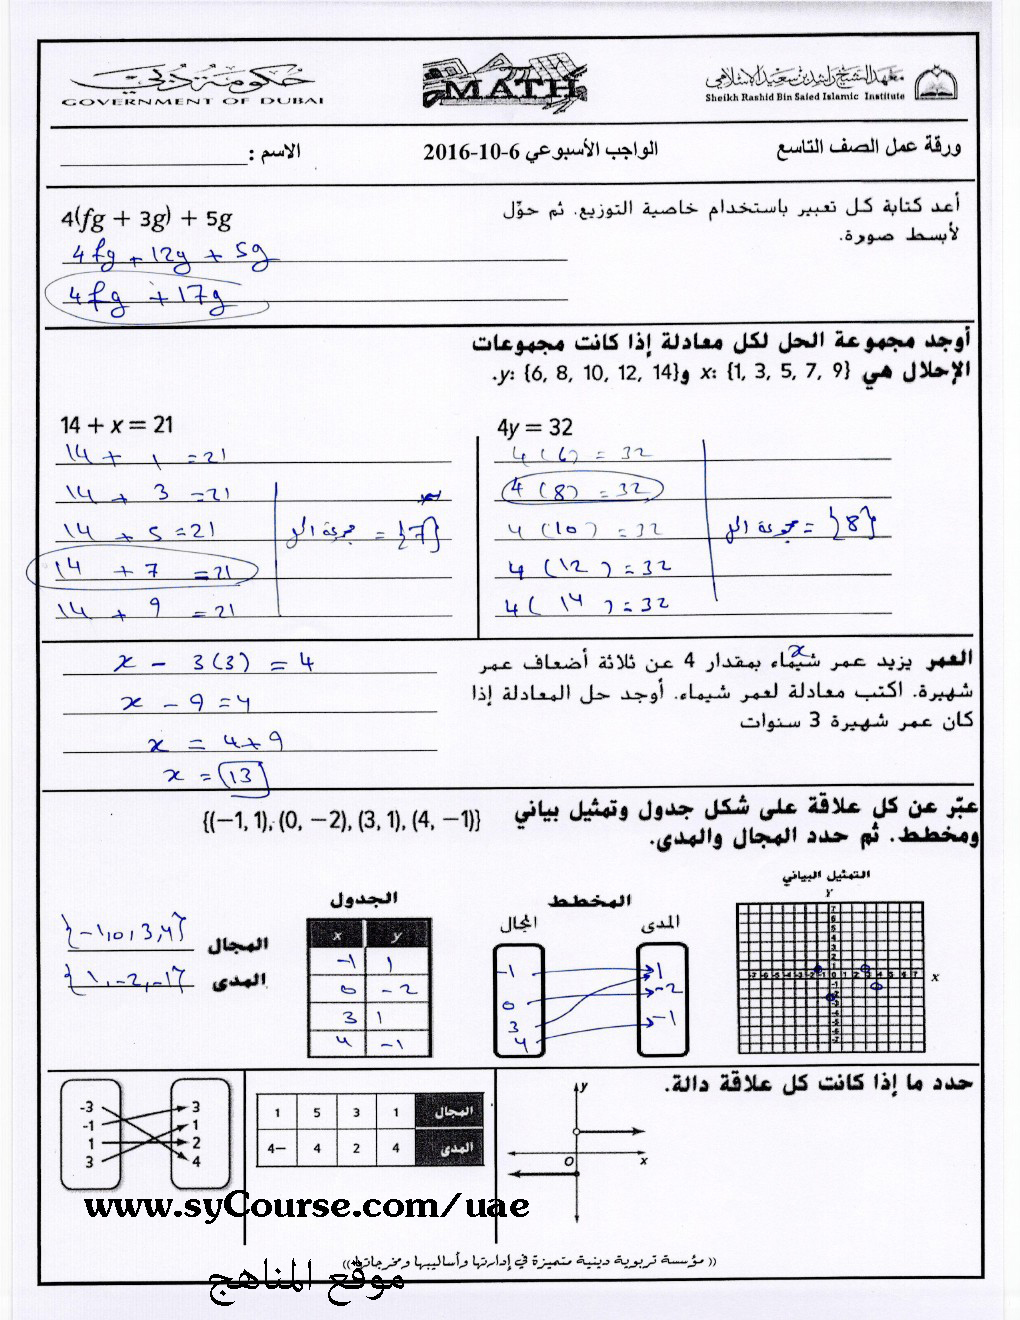 حكومة دبي
GOVERNMENT OF DUBAI
MATH
معهد الشيخ راشد بن سعيد الإسلامي
Sheikh Rashid Bin Saied Islamic Institute
ورقة عمل الصف التاسع
الواجب الأسبوعي 6-10-2016
الاسم :
أعد كتابة كل تعبير باستخدام خاصية التوزيع. ثم حوّل
لأبسط صورة.
4(fg + 3g) + 5g
4fg + 12g + 5g
4fg + 17g
أوجد مجموعة الحل لكل معادلة إذا كانت مجموعات
الإحلال هي x: {1, 3, 5, 7, 9} وy: {6, 8, 10, 12, 14}.
4y = 32
4(6) = 32
4(8) = 32
4(10) = 32
4(12) = 32
4(14) = 32
مجموعة الحل = {8}
14 + x = 21
14 + 1 = 21
14 + 3 = 21
14 + 5 = 21
14 + 7 = 21
14 + 9 = 21
مجموعة الحل = {7}
العمر يزيد عمر شيماء بمقدار 4 عن ثلاثة أضعاف عمر
شهيرة. اكتب معادلة لعمر شيماء. أوجد حل المعادلة إذا
كان عمر شهيرة 3 سنوات
x
x - 3(3) = 4
x - 9 = 4
x = 4+9
x = 13
عبّر عن كل علاقة على شكل جدول وتمثيل بياني
ومخطط. ثم حدد المجال والمدى.
{(−1, 1), (0, −2), (3, 1), (4, −1)}
التمثيل البياني
Y
7
6
5
4
3
2
1
-7 -6 -5 -4 -3 -2 -1 0 1 2 3 4 5 6 7
x
-1
-2
-3
-4
-5
-6
-7
المخطط
المدى
المجال
-1
0
3
4
1
-2
-1
الجدول
x y
-1 1
0 -2
3 1
4 -1
المجال
{-1,0,3,4}
المدى
{1,-2,-1}
حدد ما إذا كانت كل علاقة دالة.
y
O
x
المجال 1 3 5 1
المدى 4 2 4 4−
-3
-1
1
3
3
1
2
4
www.syCourse.com/uae
(( مؤسسة تربوية دينية متميزة في إدارتها وأساليبها ومخرجاتها ))
موقع المناهج